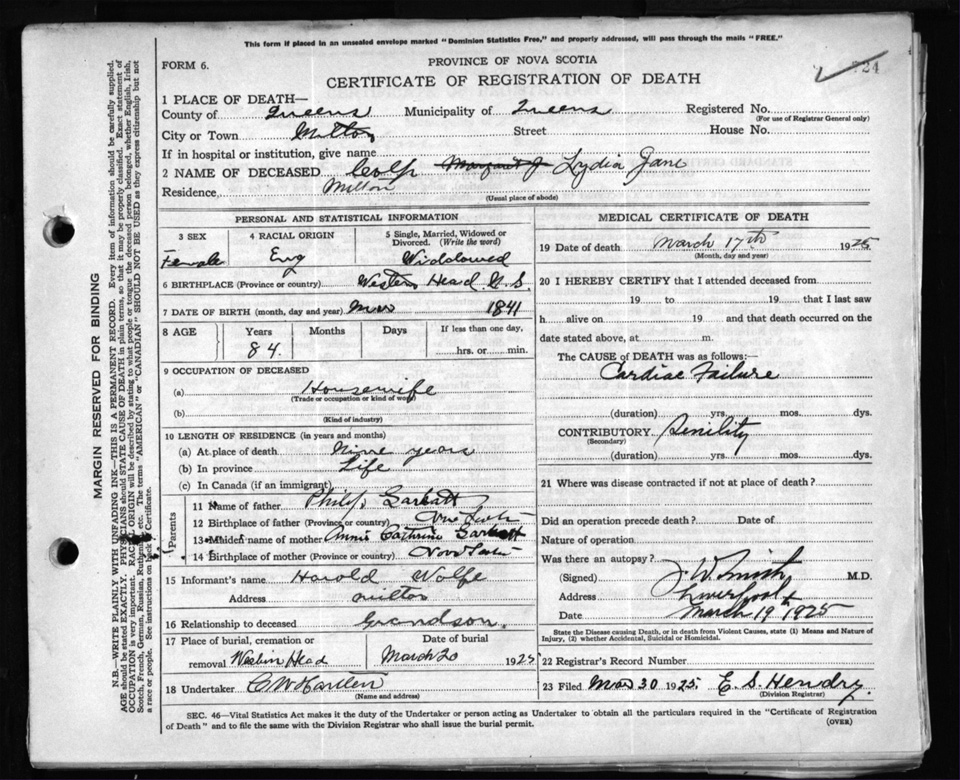 This form if placed in an unsealed envelope marked "Dominion Statistics Free," and properly addressed, will pass through the mails "FREE."
724
FORM 6.
PROVINCE OF NOVA SCOTIA
CERTIFICATE OF REGISTRATION OF DEATH
1 PLACE OF DEATH—
County of Queens Municipality of Queens Registered No.
(For use of Registrar General only)
City or Town Milton Street House No.
If in hospital or institution, give name
2 NAME OF DECEASED Wolfe Margaret J Lydia Jane
Residence Milton
(Usual place of abode)
PERSONAL AND STATISTICAL INFORMATION
3 SEX 4 RACIAL ORIGIN 5 Single, Married, Widowed or Divorced. (Write the word)
Female Eng Widdowed
6 BIRTHPLACE (Province or country) Western Head N.S.
7 DATE OF BIRTH (month, day and year) 1841
8 AGE Years Months Days If less than one day,
84. hrs. or min.
9 OCCUPATION OF DECEASED
(a) Housewife
(Trade or occupation or kind of work)
(b)
(Kind of industry)
10 LENGTH OF RESIDENCE (in years and months)
(a) At place of death Nine years
(b) In province Life
(c) In Canada (if an immigrant)
Parents
11 Name of father Philip
12 Birthplace of father (Province or country)
13 Maiden name of mother Annie Cathrine
14 Birthplace of mother (Province or country)
15 Informant's name Harold Wolfe
Address Milton
16 Relationship to deceased Grandson.
17 Place of burial, cremation or removal Western Head Date of burial March 20 1925
18 Undertaker C W Hartlen
(Name and address)
MEDICAL CERTIFICATE OF DEATH
19 Date of death March 17th 1925
(Month, day and year)
20 I HEREBY CERTIFY that I attended deceased from
19 to 19 that I last saw
h alive on 19 and that death occurred on the
date stated above, at m.
The CAUSE of DEATH was as follows:—
Cardiac Failure
(duration) yrs. mos. dys.
CONTRIBUTORY Senility
(Secondary)
(duration) yrs. mos. dys.
21 Where was disease contracted if not at place of death?
Did an operation precede death? Date of
Nature of operation
Was there an autopsy?
(Signed) J. W. Smith M.D.
Address Liverpool
Date March 19th 1925
State the Disease causing Death, or in death from Violent Causes, state (1) Means and Nature of
Injury, (2) whether Accidental, Suicidal or Homicidal.
22 Registrar's Record Number
23 Filed Mar 30 1925 E. S. Hendry.
(Division Registrar)
SEC. 46—Vital Statistics Act makes it the duty of the Undertaker or person acting as Undertaker to obtain all the particulars required in the "Certificate of Registration
of Death" and to file the same with the Division Registrar who shall issue the burial permit.
(OVER)
MARGIN RESERVED FOR BINDING
N.B.—WRITE PLAINLY WITH UNFADING INK—THIS IS A PERMANENT RECORD. Every item of information should be carefully supplied.
AGE should be stated EXACTLY. PHYSICIANS should STATE CAUSE OF DEATH in plain terms, so that it may be properly classified. Exact statement of
OCCUPATION is very important. RACIAL ORIGIN will be described by stating to what people or tongue the deceased person belonged, whether English, Irish,
Scotch, French, German, Russian, Ruthenian, etc. The terms "AMERICAN" or "CANADIAN" SHOULD NOT BE USED as they express citizenship but not
a race or people. See instructions on back of Certificate.